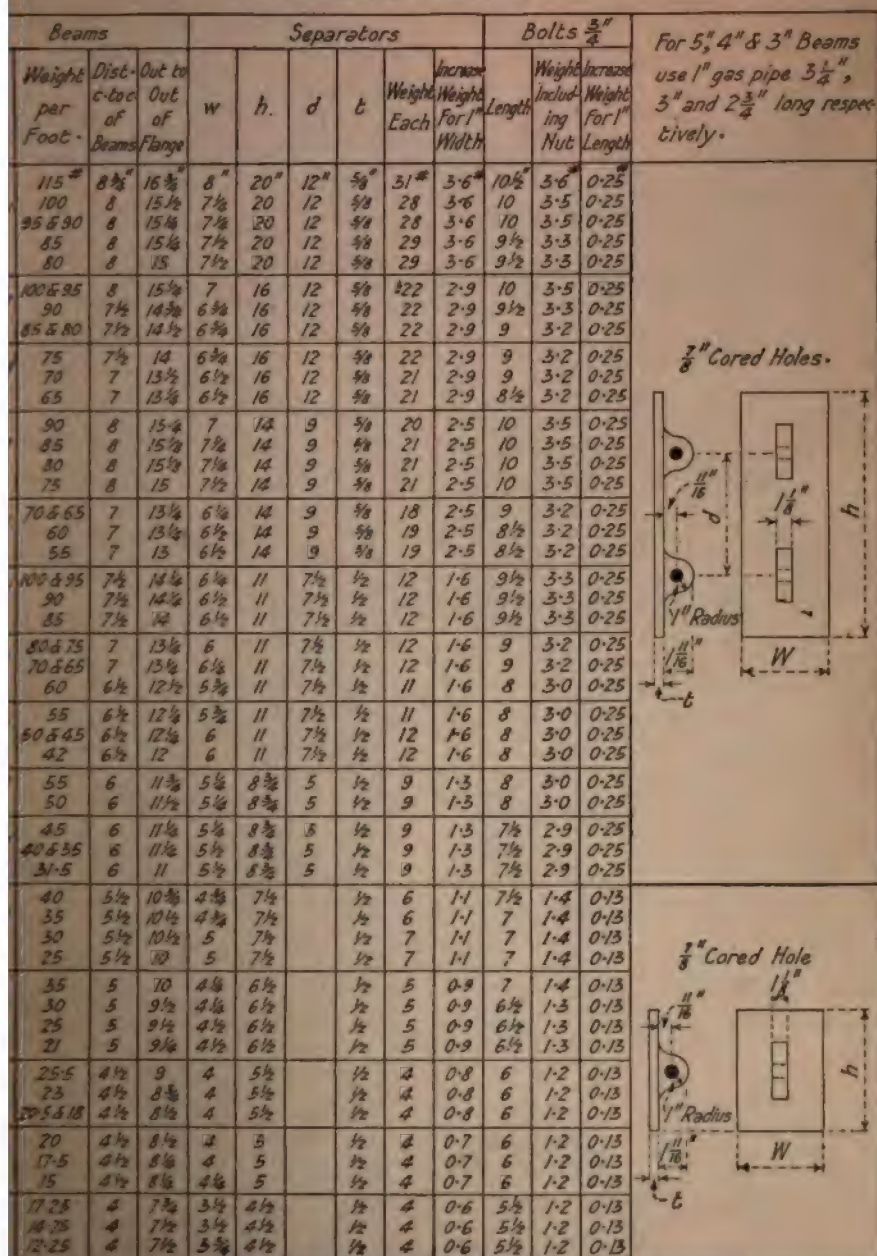 Beams Separators Bolts 3/4"
Weight per Foot. Dist. c-to c of Beams Out to Out of Flange w h. d t Weight Each Increase Weight For 1" Width Length Weight Including Nut Increase Weight For 1" Length
115# 8 3/4" 16 3/4" 8" 20" 12" 5/8" 31# 3.6# 10 1/2" 3.6# 0.25#
100 8 15 1/2 7 1/4 20 12 5/8 28 3.6 10 3.5 0.25
95 & 90 8 15 1/4 7 1/4 20 12 5/8 28 3.6 10 3.5 0.25
85 8 15 1/4 7 1/2 20 12 5/8 29 3.6 9 1/2 3.3 0.25
80 8 15 7 1/2 20 12 5/8 29 3.6 9 1/2 3.3 0.25
100 & 95 8 15 1/4 7 16 12 5/8 22 2.9 10 3.5 0.25
90 7 1/2 14 3/4 6 3/4 16 12 5/8 22 2.9 9 1/2 3.3 0.25
85 & 80 7 1/2 14 1/2 6 3/4 16 12 5/8 22 2.9 9 3.2 0.25
75 7 1/2 14 6 3/4 16 12 5/8 22 2.9 9 3.2 0.25
70 7 13 1/2 6 1/2 16 12 5/8 21 2.9 9 3.2 0.25
65 7 13 1/4 6 1/2 16 12 5/8 21 2.9 8 1/2 3.2 0.25
90 8 7 14 9 5/8 20 2.5 10 3.5 0.25
85 8 15 1/4 7 1/4 14 9 5/8 21 2.5 10 3.5 0.25
80 8 15 1/4 7 1/4 14 9 5/8 21 2.5 10 3.5 0.25
75 8 15 7 1/2 14 9 5/8 21 2.5 10 3.5 0.25
70 & 65 7 13 1/4 6 1/4 14 9 5/8 18 2.5 9 3.2 0.25
60 7 13 1/4 6 1/2 14 9 5/8 19 2.5 8 1/2 3.2 0.25
55 7 13 6 1/2 14 9 5/8 19 2.5 8 1/2 3.2 0.25
100 & 95 7 1/2 14 1/4 6 1/4 11 7 1/2 1/2 12 1.6 9 1/2 3.3 0.25
90 7 1/2 14 1/4 6 1/2 11 7 1/2 1/2 12 1.6 9 1/2 3.3 0.25
85 7 1/2 14 6 1/2 11 7 1/2 1/2 12 1.6 9 1/2 3.3 0.25
80 & 75 7 13 1/4 6 11 7 1/2 1/2 12 1.6 9 3.2 0.25
70 & 65 7 13 1/4 6 1/4 11 7 1/2 1/2 12 1.6 9 3.2 0.25
60 6 1/2 12 1/2 5 3/4 11 7 1/2 1/2 11 1.6 8 3.0 0.25
55 6 1/2 12 1/4 5 3/4 11 7 1/2 1/2 11 1.6 8 3.0 0.25
50 & 45 6 1/2 12 1/4 6 11 7 1/2 1/2 12 1.6 8 3.0 0.25
42 6 1/2 12 6 11 7 1/2 1/2 12 1.6 8 3.0 0.25
55 6 11 3/4 5 1/4 8 3/4 5 1/2 9 1.3 8 3.0 0.25
50 6 11 1/2 5 1/4 8 3/4 5 1/2 9 1.3 8 3.0 0.25
45 6 11 1/4 5 1/4 8 3/4 5 1/2 9 1.3 7 1/2 2.9 0.25
40 & 35 6 11 1/4 5 1/2 8 3/4 5 1/2 9 1.3 7 1/2 2.9 0.25
31.5 6 11 5 1/2 8 3/4 5 1/2 9 1.3 7 1/2 2.9 0.25
40 5 1/2 10 3/4 4 3/4 7 1/2 1/2 6 1.1 7 1/2 1.4 0.13
35 5 1/2 10 1/2 4 3/4 7 1/2 1/2 6 1.1 7 1.4 0.13
30 5 1/2 10 1/2 5 7 1/2 1/2 7 1.1 7 1.4 0.13
25 5 1/2 10 5 7 1/2 1/2 7 1.1 7 1.4 0.13
35 5 10 4 1/4 6 1/2 1/2 5 0.9 7 1.4 0.13
30 5 9 1/2 4 1/4 6 1/2 1/2 5 0.9 6 1/2 1.3 0.13
25 5 9 1/2 4 1/2 6 1/2 1/2 5 0.9 6 1/2 1.3 0.13
21 5 9 1/4 4 1/2 6 1/2 1/2 5 0.9 6 1/2 1.3 0.13
25.5 4 1/2 9 4 5 1/2 1/2 4 0.8 6 1.2 0.13
23 4 1/2 8 3/4 4 5 1/2 1/2 4 0.8 6 1.2 0.13
20.5 & 18 4 1/2 8 1/2 4 5 1/2 1/2 4 0.8 6 1.2 0.13
20 4 1/2 8 1/2 4 5 1/2 4 0.7 6 1.2 0.13
17.5 4 1/2 8 1/4 4 5 1/2 4 0.7 6 1.2 0.13
15 4 1/2 8 1/4 4 1/4 5 1/2 4 0.7 6 1.2 0.13
17.25 4 7 3/4 3 1/2 4 1/2 1/2 4 0.6 5 1/2 1.2 0.13
14.75 4 7 1/2 3 1/2 4 1/2 1/2 4 0.6 5 1/2 1.2 0.13
12.25 4 7 1/2 3 3/4 4 1/2 1/2 4 0.6 5 1/2 1.2 0.13
For 5", 4" & 3" Beams
use 1" gas pipe 3 1/4",
3" and 2 3/4" long respec-
tively.
7/8" Cored Holes.
11/16"
d
1 1/8"
h
1" Radius
1 11/16"
W
t
7/8" Cored Hole
1 1/8"
11/16"
h
1" Radius
1 11/16"
W
t